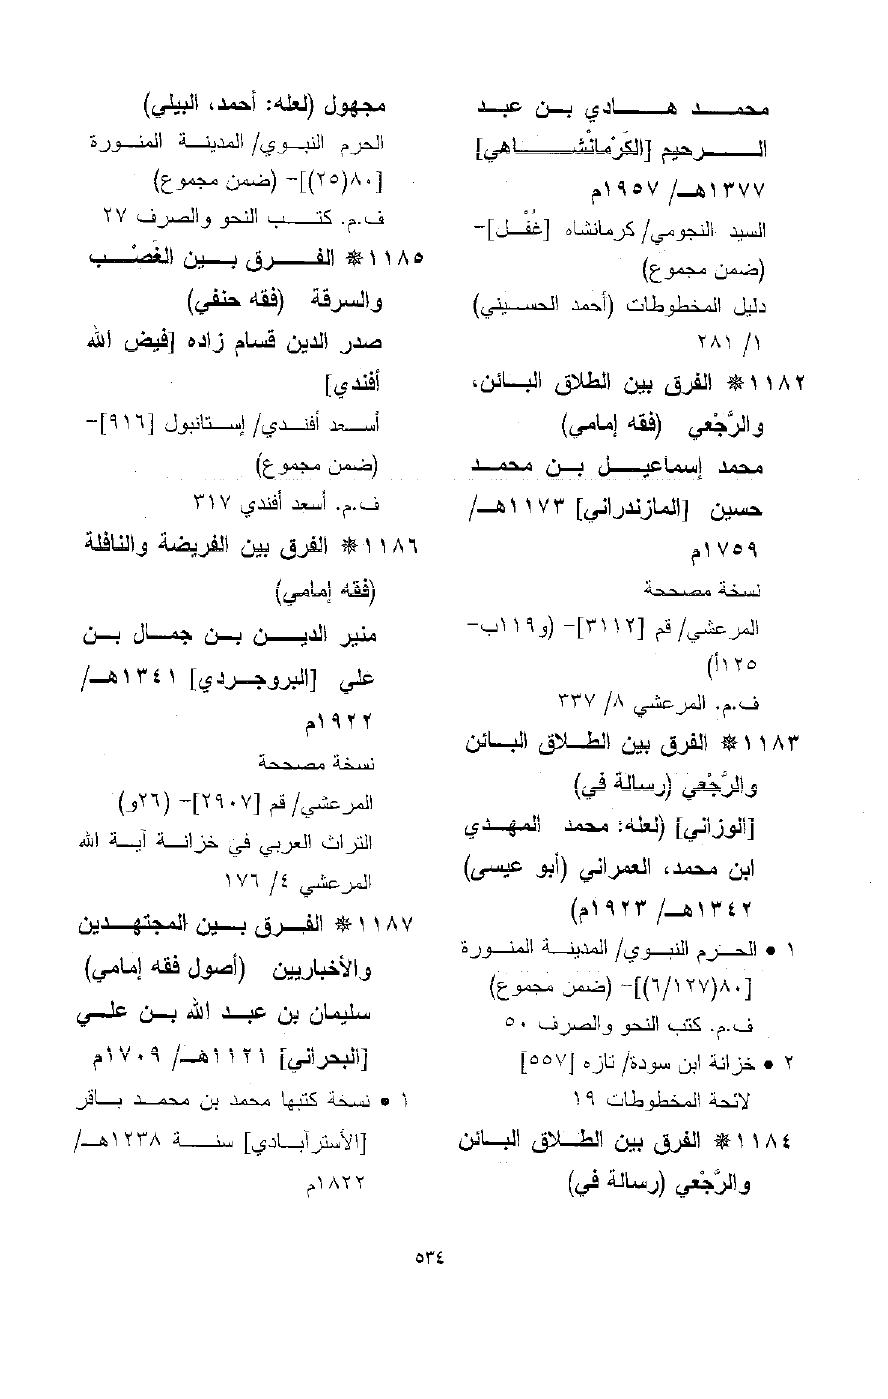 محمد هادي بن عبد
الرحيم [الكَرْمانْشاهي]
١٣٧٧هـ/ ١٩٥٧م
السيد النجومي/ كرمانشاه [غُفْل]-
(ضمن مجموع)
دليل المخطوطات (أحمد الحسيني)
١/ ٢٨١
١١٨٢* الفرق بين الطلاق البائن،
والرَّجْعي (فقه إمامي)
محمد إسماعيل بن محمد
حسين [المازندراني] ١١٧٣هـ/
١٧٥٩م
نسخة مصححة
المرعشي/ قم [٣١١٢]- (و١١٩ب-
١٢٥أ)
ف.م. المرعشي ٨/ ٣٣٧
١١٨٣* الفرق بين الطلاق البائن
والرَّجْعي (رسالة في)
[الوزاني] (لعله: محمد المهدي
ابن محمد، العمراني (أبو عيسى)
١٣٤٢هـ/ ١٩٢٣م)
١ • الحرم النبوي/ المدينة المنورة
[٨٠(٦/١٢٧)]- (ضمن مجموع)
ف.م. كتب النحو والصرف ٥٠
٢ • خزانة ابن سودة/ تازه [٥٥٧]
لائحة المخطوطات ١٩
١١٨٤* الفرق بين الطلاق البائن
والرَّجْعي (رسالة في)
مجهول (لعله: أحمد، البيلي)
الحرم النبوي/ المدينة المنورة
[٨٠(٢٥)]- (ضمن مجموع)
ف.م. كتب النحو والصرف ٢٧
١١٨٥* الفرق بين الغَصْب
والسرقة (فقه حنفي)
صدر الدين قسام زاده [فيض الله
أفندي]
أسعد أفندي/ إستانبول [٩١٦]-
(ضمن مجموع)
ف.م. أسعد أفندي ٣١٧
١١٨٦* الفرق بين الفريضة والنافلة
(فقه إمامي)
منير الدين بن جمال بن
علي [البروجردي] ١٣٤١هـ/
١٩٢٢م
نسخة مصححة
المرعشي/ قم [٢٩٠٧]- (٢٦و)
التراث العربي في خزانة آية الله
المرعشي ٤/ ١٧٦
١١٨٧* الفرق بين المجتهدين
والأخباريين (أصول فقه إمامي)
سليمان بن عبد الله بن علي
[البحراني] ١١٢١هـ/ ١٧٠٩م
١ • نسخة كتبها محمد بن محمد باقر
[الأسترآبادي] سنة ١٢٣٨هـ/
١٨٢٢م
٥٣٤